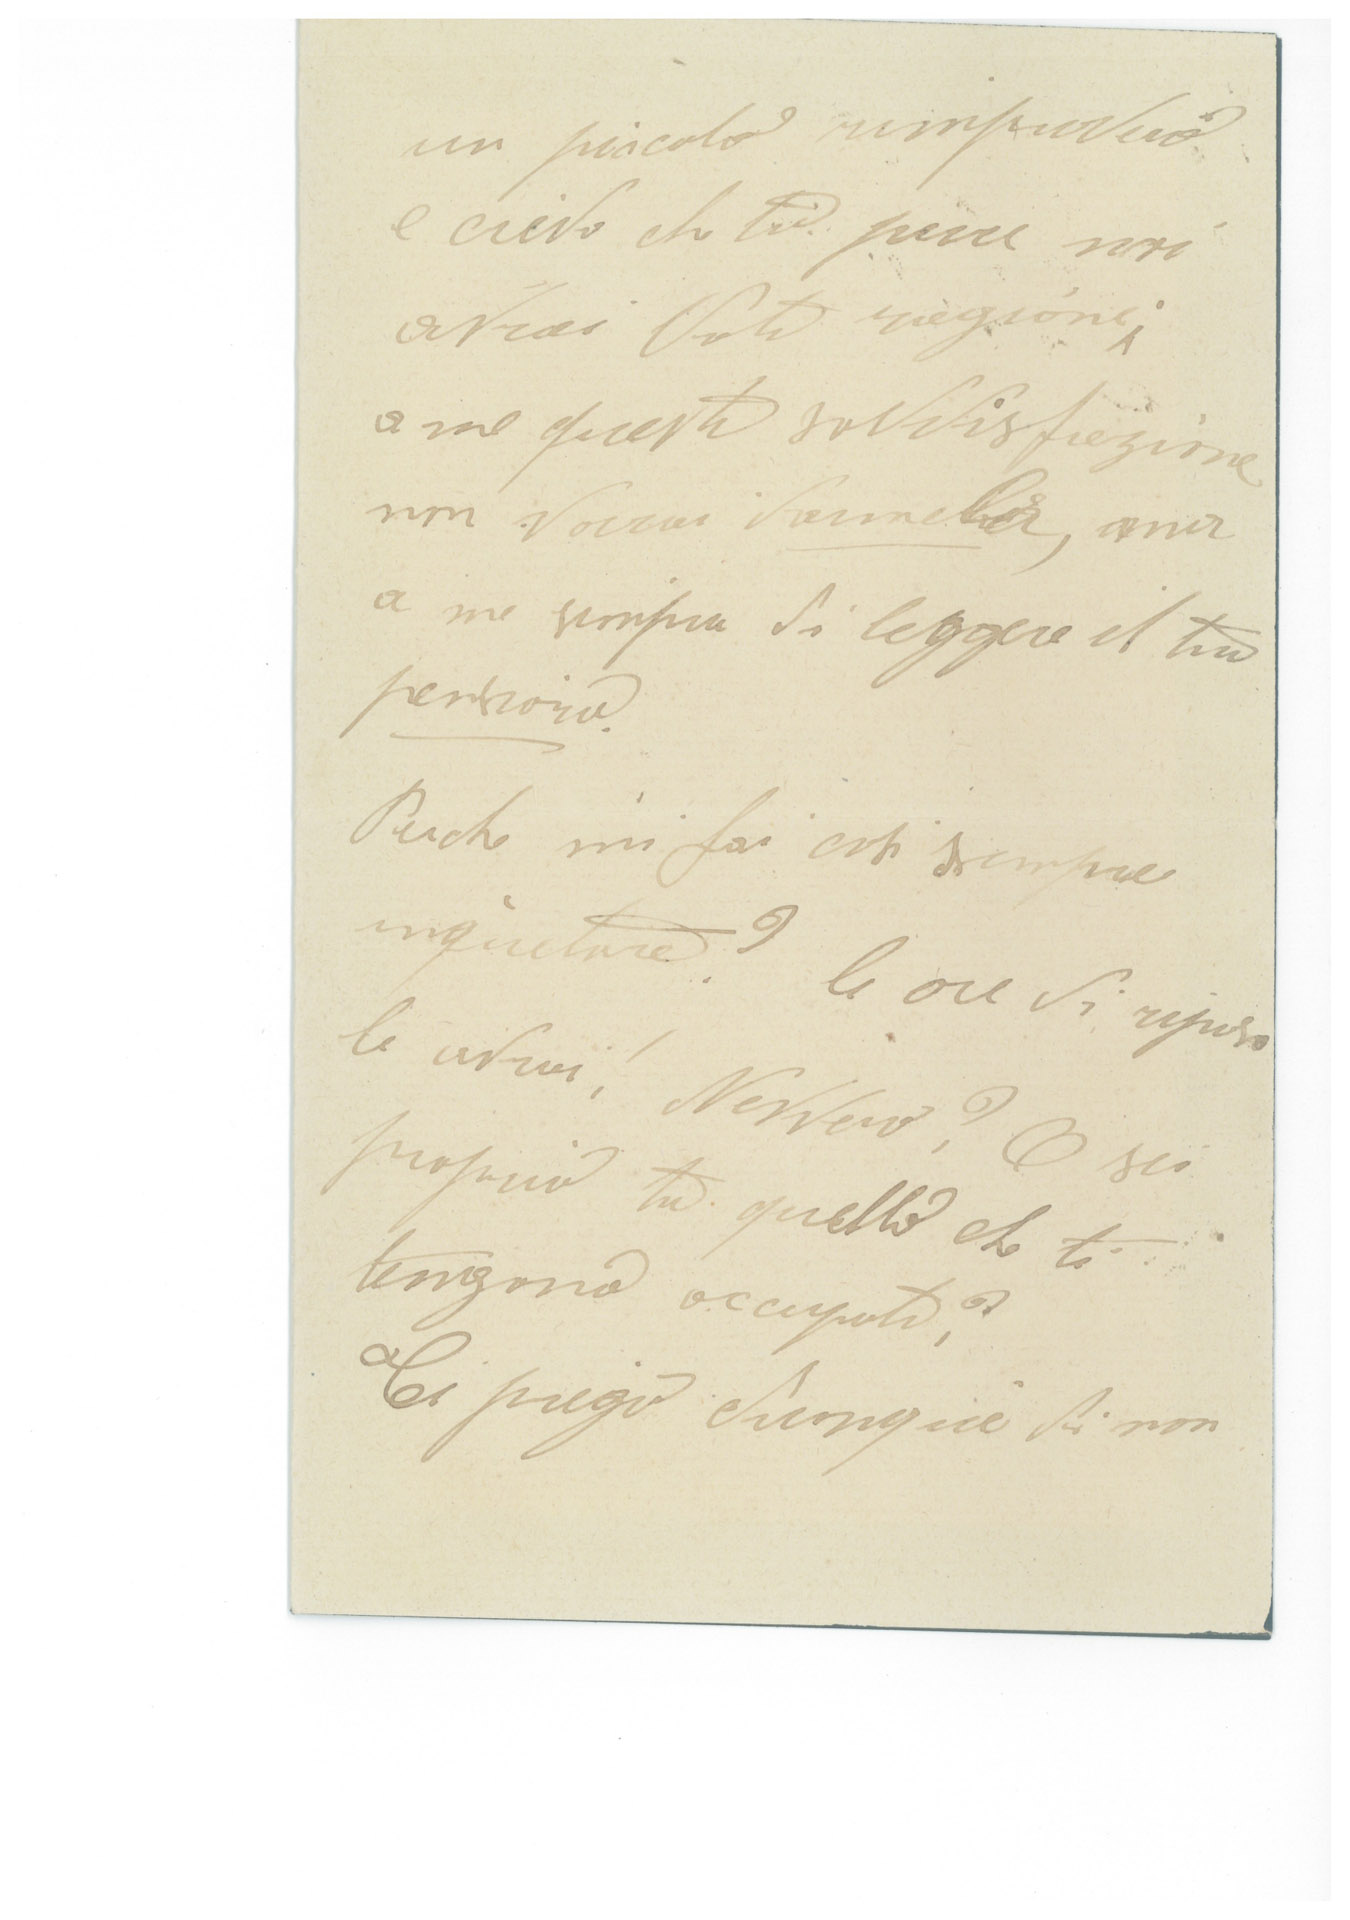 un piccolo rimprovero
e credo che tu pure mi
avrai dato ragione;
a me questa soddisfazione
non vorrai darmela, ma
a me sempra di leggere il tuo
pensiero.
Perche mi fai così sempre
inquietare? le ore di riposo
le avrai! Nevvero? O sei
proprio tu quello che ti
tengono occupato?
Ti prego dunque di non